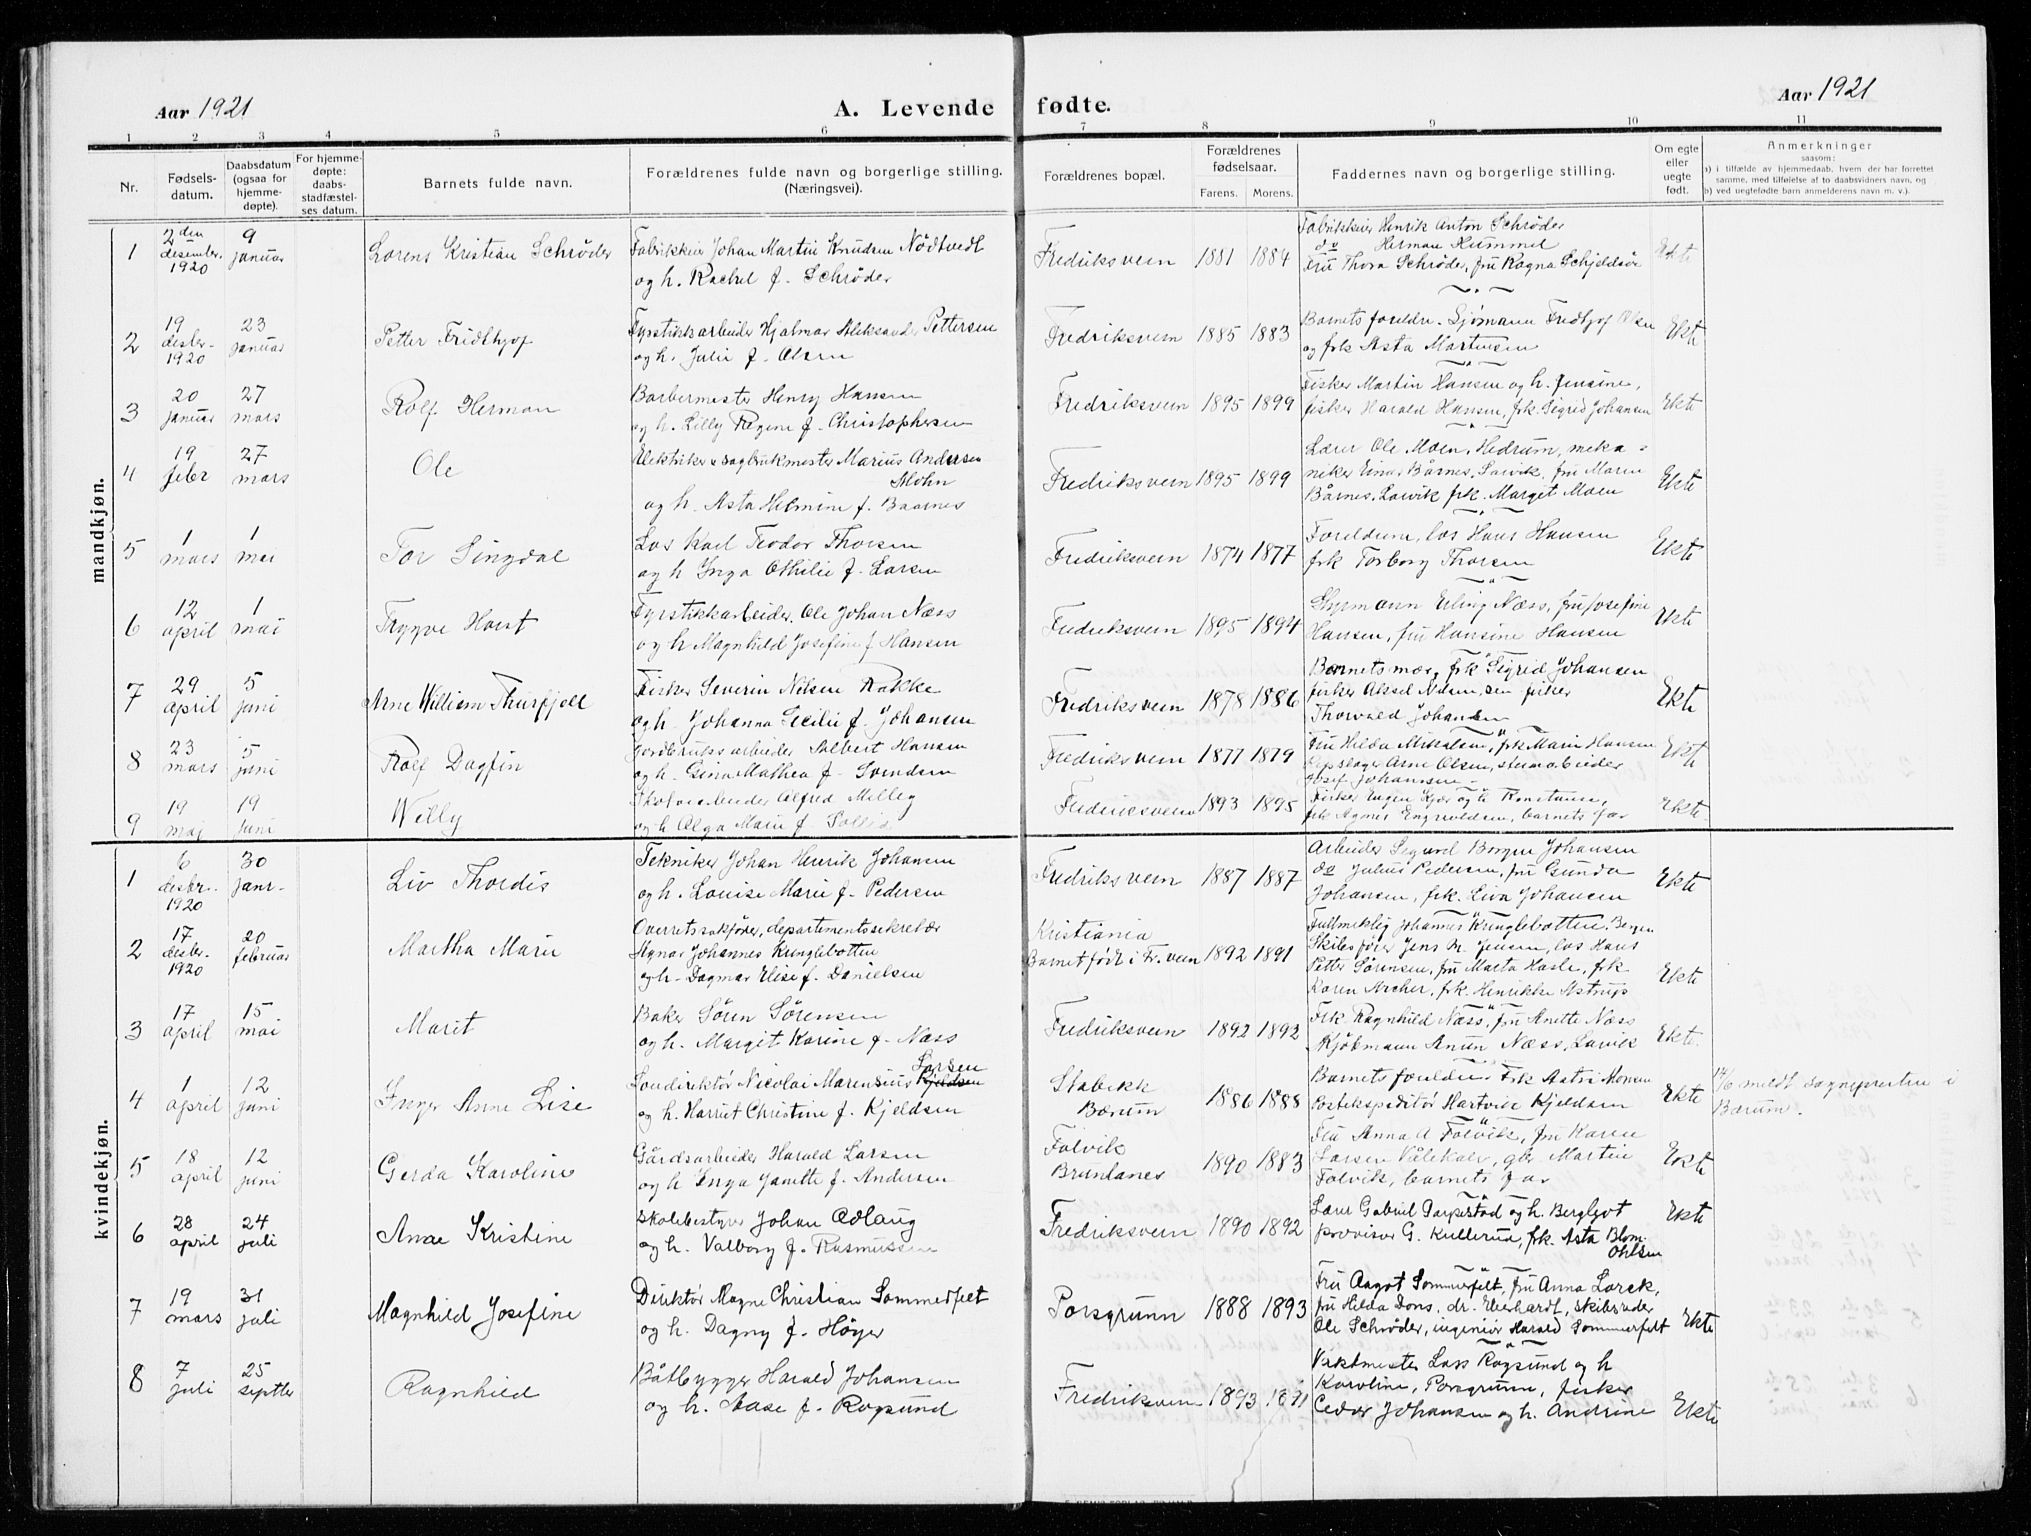 Aar 1921
A. Levende fødte.
Aar 1921
1 2 3 4 5 6 7 8 9 10 11
Nr.
Fødsels-
datum.
Daabsdatum
(ogsaa for
hjemme-
døpte).
For hjemme-
døpte:
daabs-
stadfæstel-
ses datum.
Barnets fulde navn.
Forældrenes fulde navn og borgerlige stilling.
(Næringsvei).
Forældrenes bopæl.
Forældrenes
fødselsaar.
Farens. Morens.
Faddernes navn og borgerlige stilling.
Om egte
eller
uegte
født.
Anmerkninger
saasom:
a) i tilfælde av hjemmedaab, hvem der har forrettet
samme, med tilføielse af to daabsvidners navn, og
b) ved uegtefødte barn anmelderens navn m. v.).
mandkjøn.
1
2den
desember
1920
9
januar
Lorens Kristian Schrøder
Fabrikkeier Johan Martin Knudsen Nödtvedt
og h. Rachel f. Schrøder
Fredriksvern 1881 1884
Fabrikkeier Henrik Anton Schrøder
do Herman Hummel
Fru Thora Schrøder, fru Ragna Schjeldsöe
Ekte
2
19
desbr
1920
23
januar
Petter Fridthjof
Fyrstikkarbeider Hjalmar Aleksander Pettersen
og h. Julie f. Olsen
Fredriksvern 1885 1883
Barnets foreldre. Sjömann Fridtjof Olsen
og frk Asta Martinsen
Ekte
3
20
januar
27
mars
Rolf Herman
Barbermester Henry Hansen
og h. Lilly Regine f. Christophersen
Fredriksvern 1895 1899
Fisker Martin Hansen og h. Jensine,
fisker Harald Hansen, frk. Sigrid Johansen
Ekte
4
19
febr
27
mars
Ole
Elektriker & sagbrukmester Marius Andersen
Mohn
og h. Asta Helmine f. Baarnes
Fredriksvern 1895 1899
Lærer Ole Moen, Hedrum, meka-
niker Einar Bårnes, Larvik, fru Maren
Bårnes, Larvik frk. Margit Moen
Ekte
5
1
mars
1
mai
Tor Lingdal
Los Karl Teodor Thorsen
og h Inga Othilie f. Larsen
Fredriksvern 1874 1877
Foreldrene, los Hans Hansen
frk Torborg Thorsen
Ekte
6
12
april
1
mai
Trygve Horst
Fyrstikkarbeider Ole Johan Næss
og h Magnhild Josefine f Hansen
Fredriksvern 1895 1894
Styrmann Erling Næss, fru Josefine
Hansen, fru Hansine Hansen
Ekte
7
29
april
5
juni
Arne William Thurfjell
Fisker Severin Nilsen Rakke
og h. Johanna Cecilie f. Johansen
Fredriksvern 1878 1886
Barnets mor, frk Sigrid Johansen
fisker Aksel Nilsen, sen fisker
Thorvald Johansen
Ekte
8
23
mars
5
juni
Rolf Dagfin
Jordbruksarbeider Albert Hansen
og h. Gina Mathea f. Svendsen
Fredriksvern 1877 1879
Fru Hilda Mikalsen, frk Marie Hansen
Repslager Arne Olsen, stenarbeider
Josef Johansen
Ekte
9
19
maj
19
juni
Willy
Alfred
og h Olga Marie f.
Fredriksvern 1893 1895
Fisker Eugen Kjær og h Konstanse,
frk Agnes Engvoldsen, barnets far
Ekte
kvindekjøn.
1
6
desbr.
1920
30
janr.
Liv Thordis
Tekniker Johan Henrik Johansen
og h. Louise Marie f. Pedersen
Fredriksvern 1887 1887
Arbeider Sigurd Borgen Johansen
do Julius Pedersen, fru Gunda
Johansen, frk. Liva Johansen
Ekte
2
17
desbr.
1920
20
februar
Martha Marie
Overretssakförer, departementssekretær
Agnar Johannes Kringlebotten
og h. Dagmar Elise f. Danielsen
Kristiania
Barnet födt i Fr.vern 1892 1891
Fullmektig Johannes Kringlebotten, Bergen
Skibsförer Jens M. Jensen, los Hans
Petter Sørensen, fru Marta Hasle, frk.
Karen Archer, frk. Henrikke Astrup
Ekte
3
17
april
15
mai
Marit
Baker Sören Sörensen
og h. Margit Karine f. Næss
Fredriksvern 1892 1892
Frk Ragnhild Næss, fru Anette Næss
Kjöbmann Anun Næss, Larvik
Ekte.
4
1
april
12
juni
Inger Anne Lise
Larsen
Nicolai Marensius Kjeldsen
og h. Harriet Christine f. Kjeldsen
Stabekk
Bærum 1886 1888
Barnets foreldre Frk Astri Monsen
Postekspeditör Hartvig Kjeldsen
Ekte
14/6 meldt sogneprestene i
Bærum.
5
18
april
12
juni
Gerda Karoline
Gårdsarbeider Harald Larsen
og h Inga Janette f. Andersen
Folvik
Brunlanes 1890 1883
Fru Anna A Folvik, fru Karen
Larsen, gbr Martin
Folvik, barnets far
Ekte
6
28
april
24
juli
Anne Kristine
Skolebestyrer Johan Odlaug
og h. Valborg f. Rasmussen
Fredriksvern 1890 1892
Lærer Gabriel Tarpestad og h. Bergljot
provisor G. Kullerud, frk. Asta Blom-
Ohlsen
Ekte
7
19
mars
31
juli
Magnhild Josefine
Direktör Magne Christian Sommerfelt
og h. Dagny f. Höyer
Porsgrunn 1888 1893
Fru Aagot Sommerfelt, fru Anna Larck,
fru Hilda Dons, dr. Eberhardt, skibsreder
Ole Schrøder, ingeniör Harald Sommerfelt
Ekte
8
7
juli
25
septbr
Ragnhild
Båtbygger Harald Johansen
og h. Aase f. Rogsund
Fredriksvern 1893 1891
Vaktmester Lars Rogsund og h
Karoline, Porsgrunn, fisker
Johansen og h. Andrine
Ekte